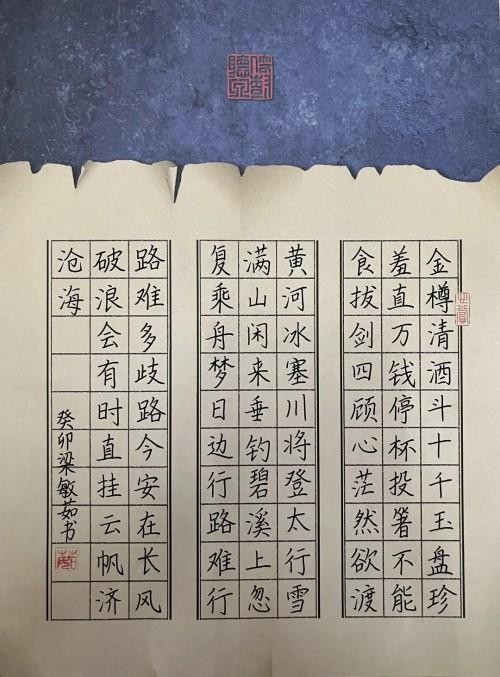 金樽清酒斗十千玉盘珍
羞直万钱停杯投箸不能
食拔剑四顾心茫然欲渡
黄河冰塞川将登太行雪
满山闲来垂钓碧溪上忽
复乘舟梦日边行路难行
路难多歧路今安在长风
破浪会有时直挂云帆济
沧海
癸卯梁敏茹书